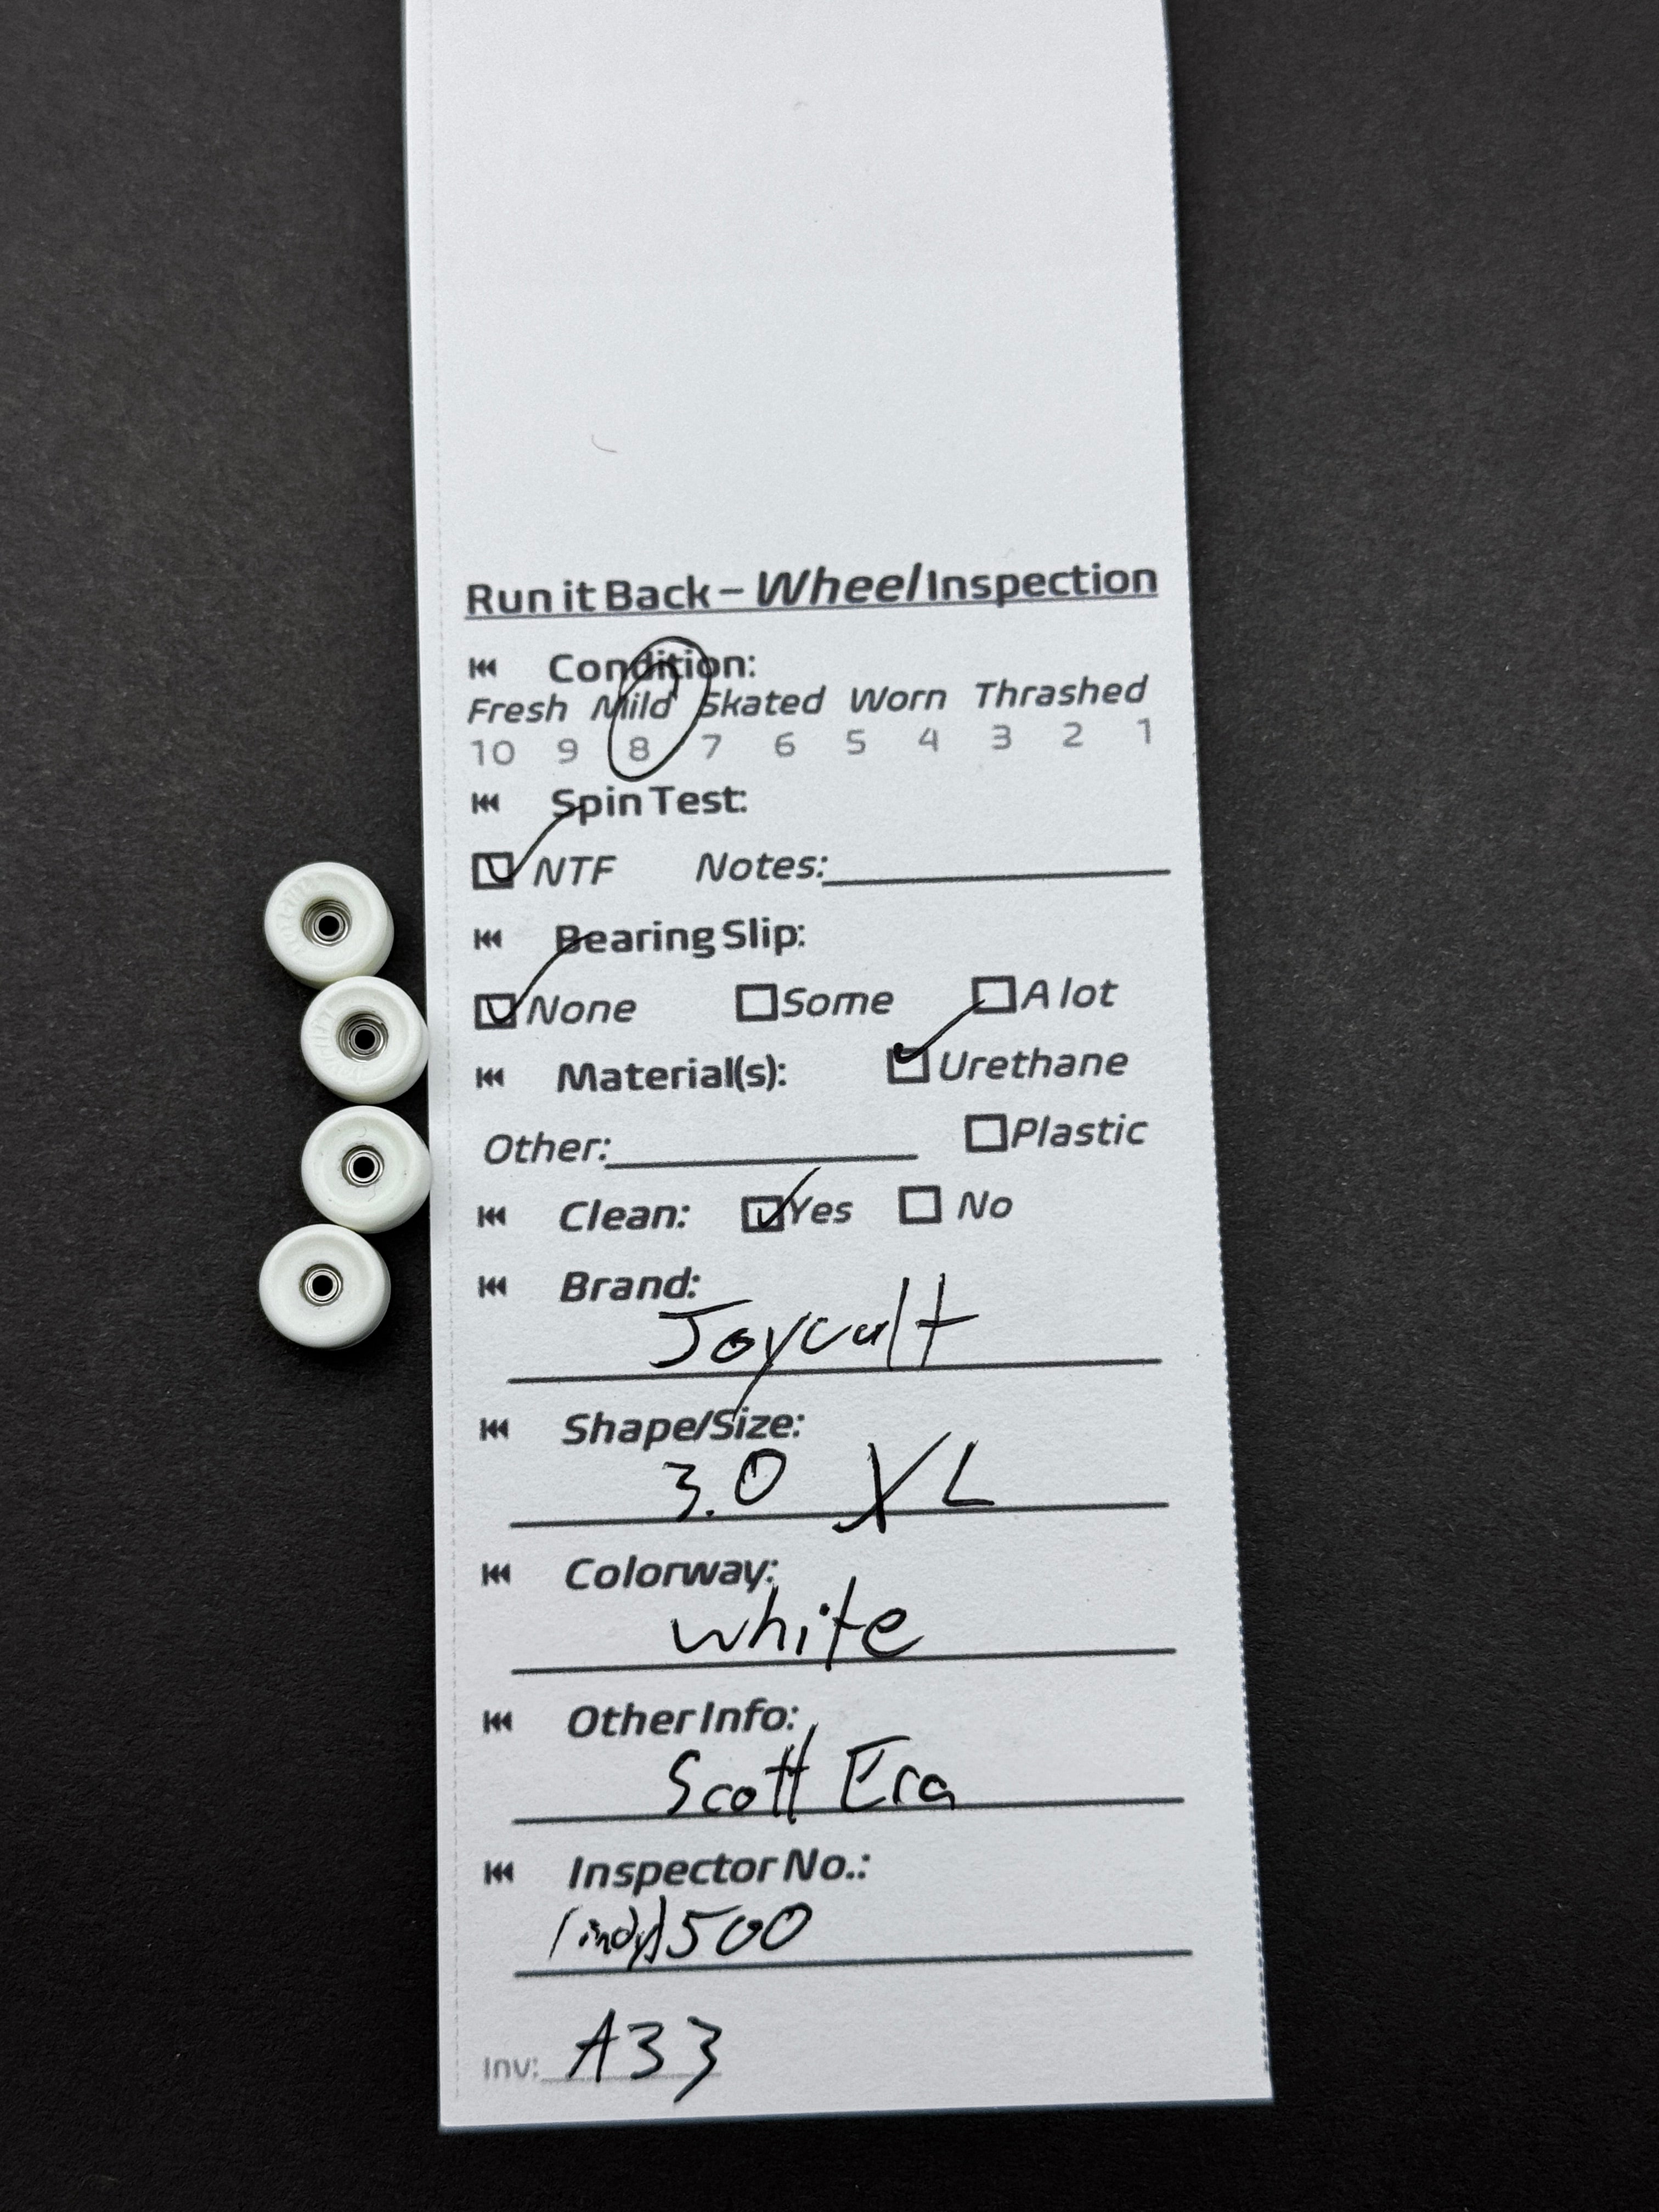 Run it Back – Wheel Inspection
Condition:
Fresh Mild Skated Worn Thrashed
10 9 8 7 6 5 4 3 2 1
Spin Test:
NTF Notes:
Bearing Slip:
None Some A lot
Material(s): Urethane
Other: Plastic
Clean: Yes No
Brand:
Joycult
Shape/Size:
3.0 XL
Colorway:
white
Other Info:
Scott Era
Inspector No.:
(indy) 500
Inv: A33